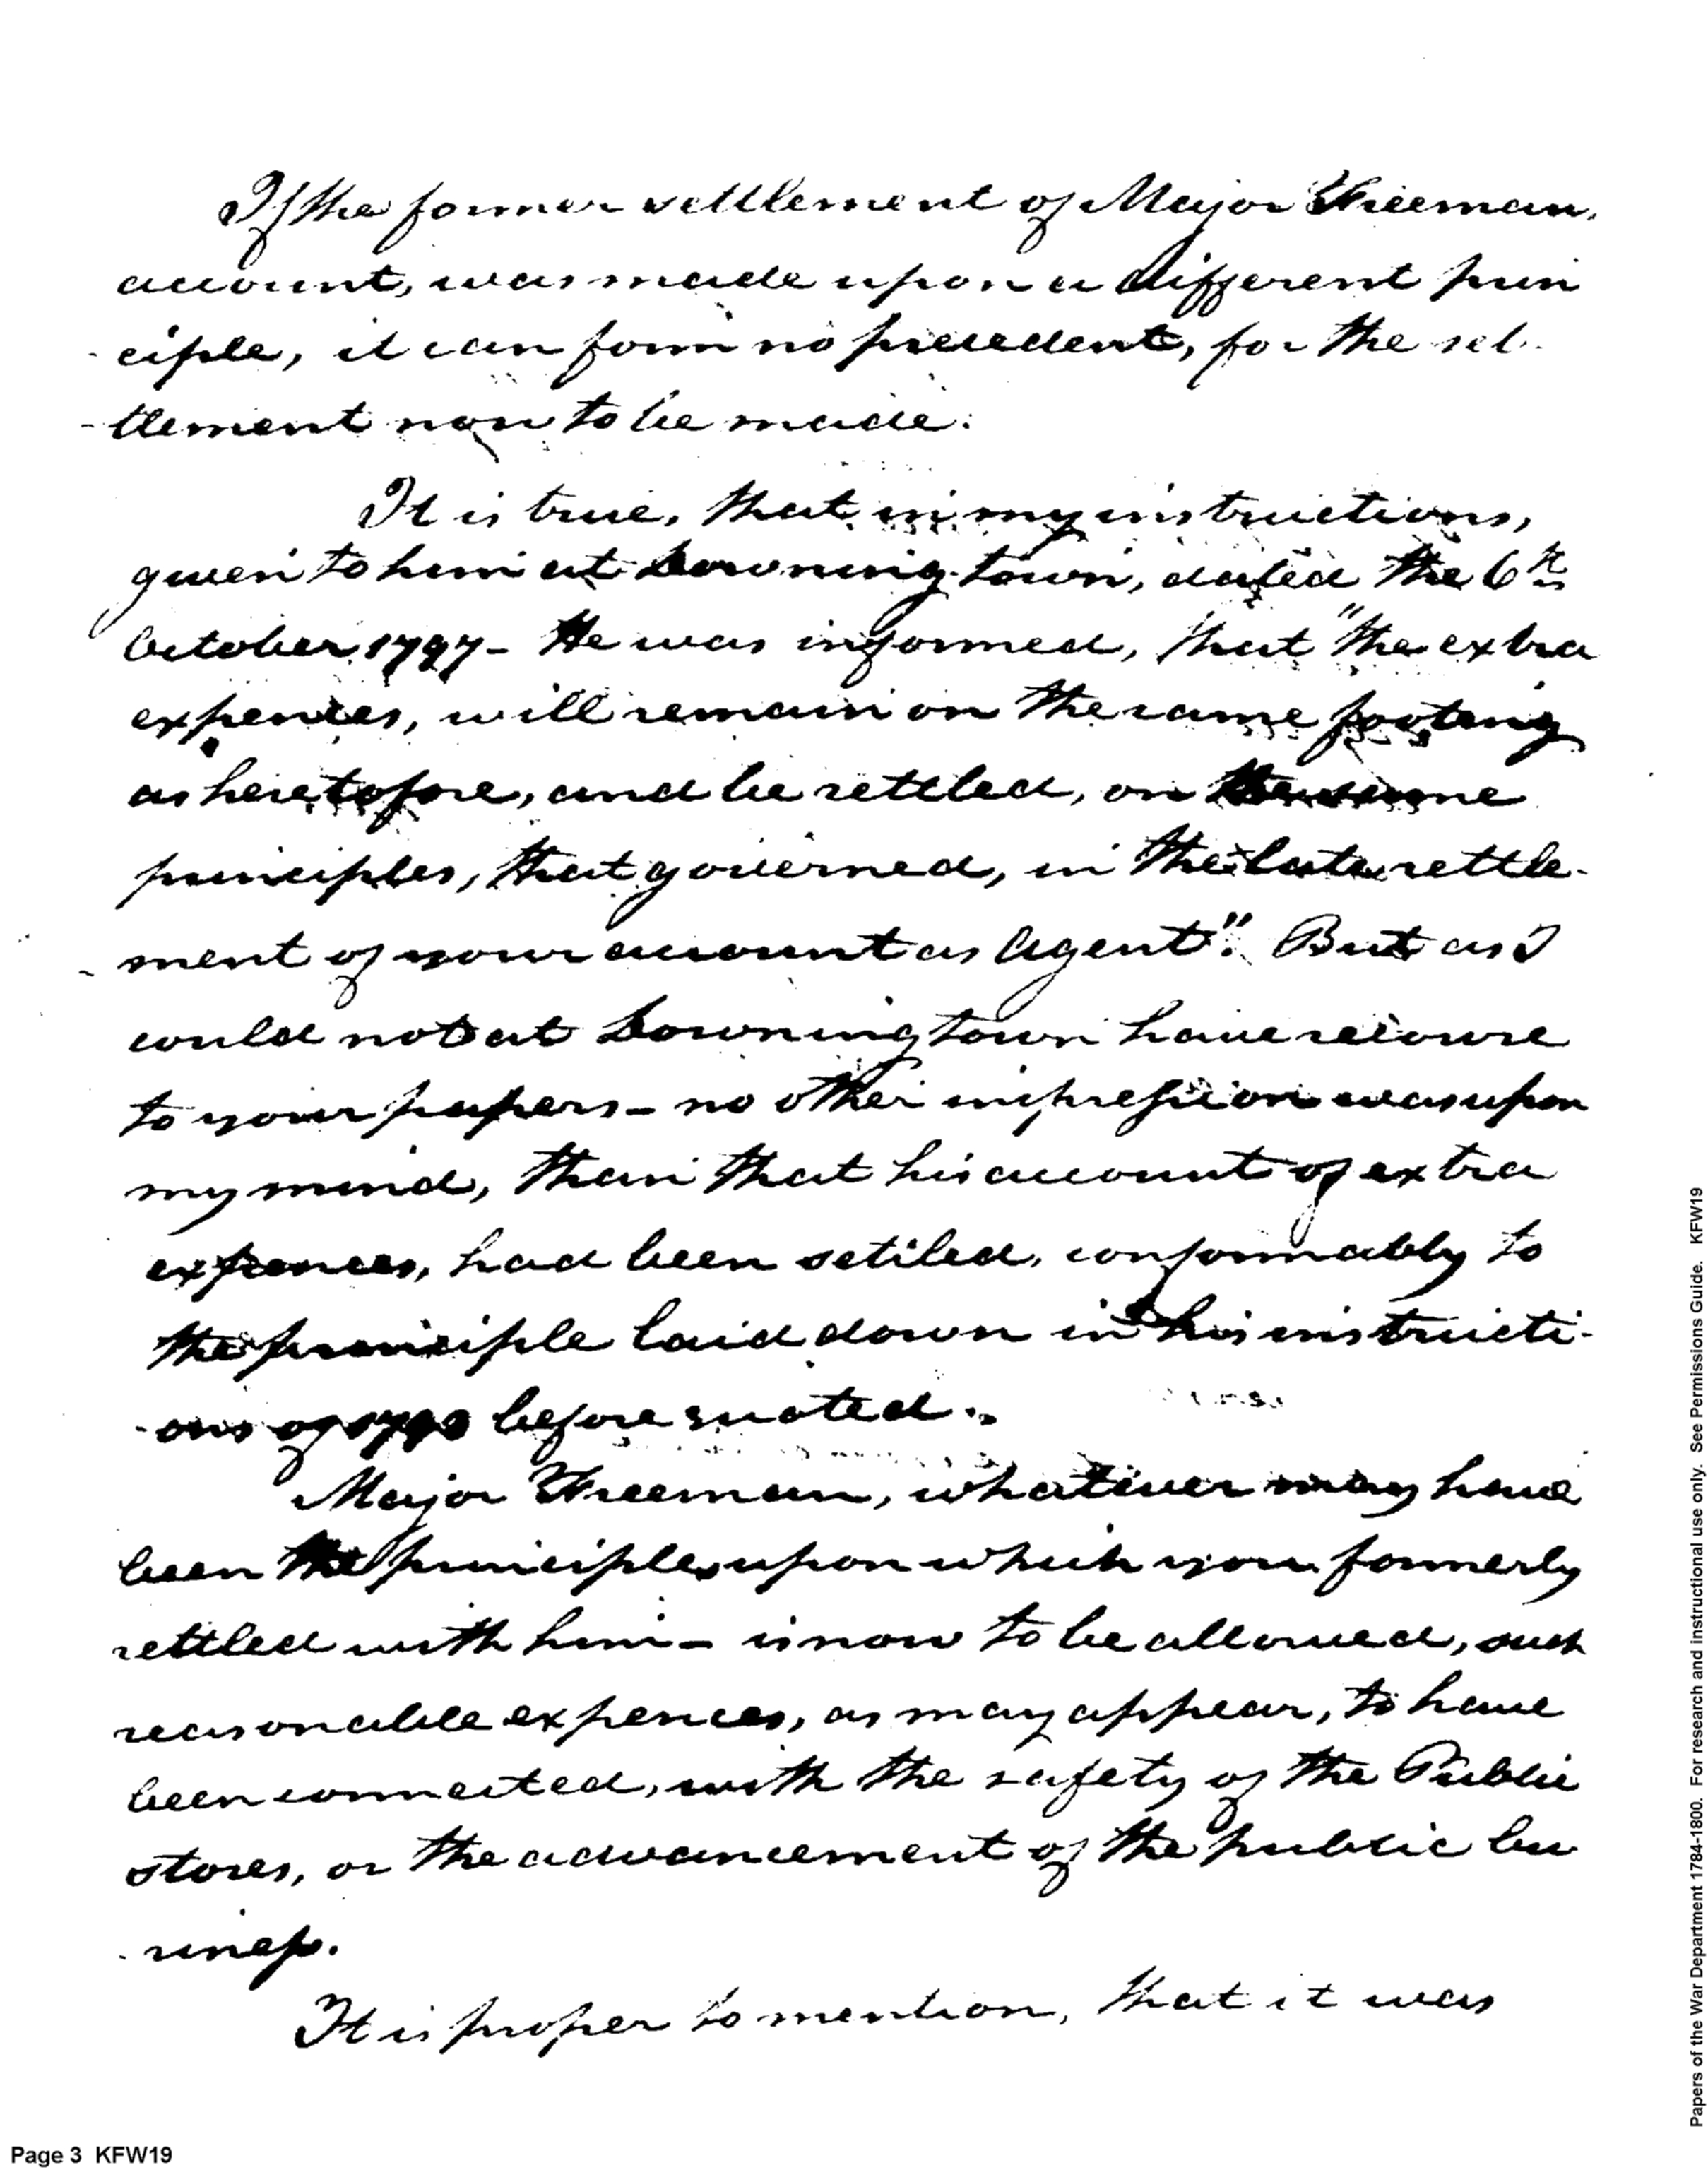 If the former settlement of Major Freeman,
account, was made upon a different prin
- ciple, it can form no precedent, for the set-
- tlement now to be made.
It is true, that in my instructions,
given to him at Downingtown, dated the 6th
October 1797 - He was informed, that "the extra
expences, will remain on the same footing
as heretofore, and be settled, on the same
principles, that governed, in the late settle-
- ment of your account as Agent". But as I
could not at Downingtown have recourse
to your papers - no other impression was upon
my mind, than that his account of extra
expences, had been settled, conformably to
the principle laid down in his instructi-
- ons of before quoted.
Major Freeman, whatever may have
been the principles upon which you formerly
settled with him - is now to be allowed, such
reasonable expences, as may appear, to have
been connected, with the safety of the Public
stores, or the advancement of the public bu
- siness.
It is proper to mention, that it was
Page 3 KFW19
Papers of the War Department 1784-1800. For research and instructional use only. See Permissions Guide. KFW19